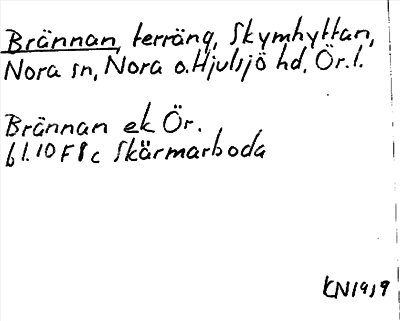 Brännan, terräng, Skymhyttan,
Nora sn, Nora o. Hjulsjö hd, Ör. l.
Brännan ek Ör.
bl. 10 F 8 c Skärmarboda
KN 1919